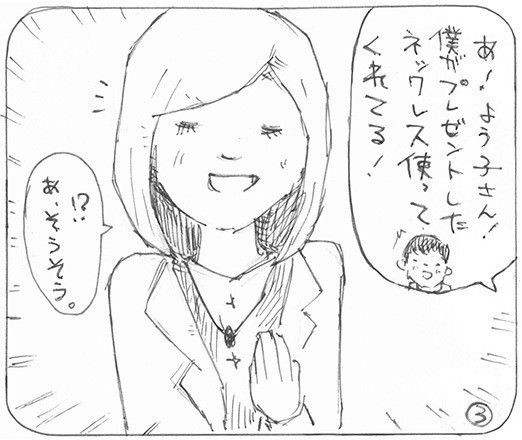 あ！よう子さん！
僕がプレゼントした
ネックレス使って
くれてる！
!?
あ、そうそう。
3